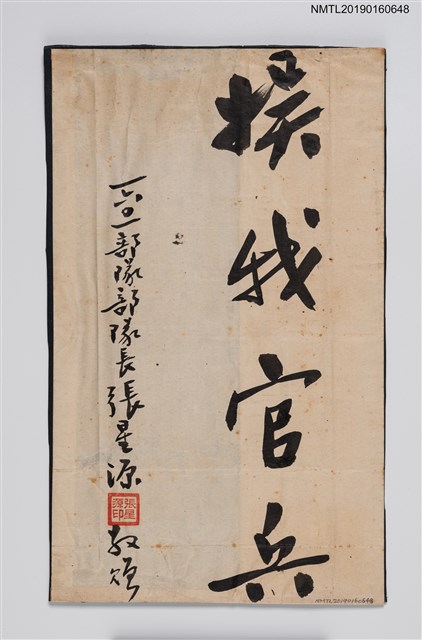 NMTL20190160648
我官兵
一六〇一部隊部隊長張星源
張星源印
敬